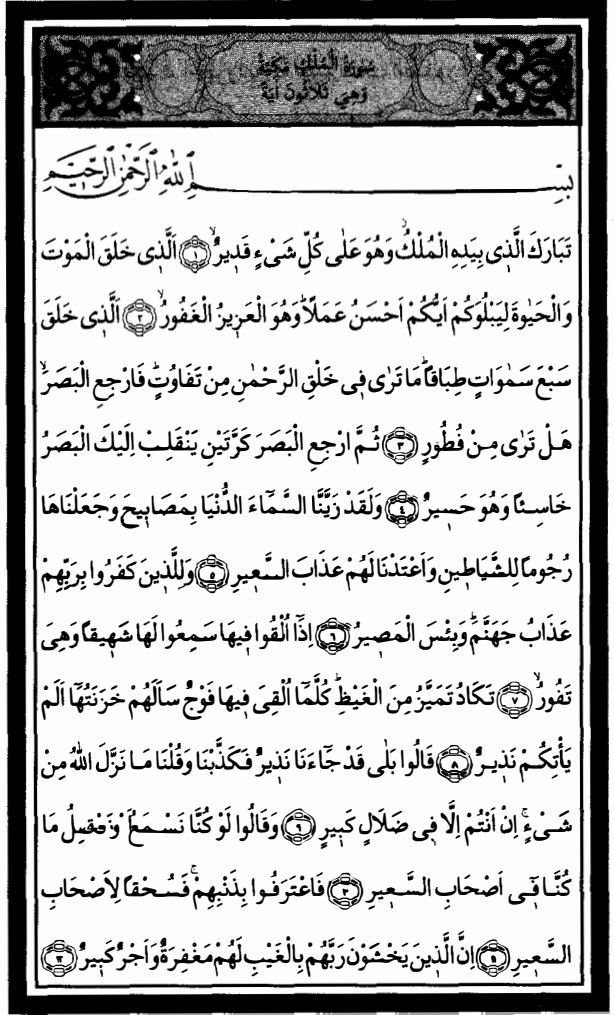 سُورَةُ الْمُلْكِ مَكِّيَّةٌ
وَهِيَ ثَلَاثُونَ اٰيَةً
بِسْمِ اللّٰهِ الرَّحْمٰنِ الرَّحٖيمِ
تَبَارَكَ الَّذٖى بِيَدِهِ الْمُلْكُۘ وَهُوَ عَلٰى كُلِّ شَىْءٍ قَدٖيرٌۙ ﴿١﴾ اَلَّذٖى خَلَقَ الْمَوْتَ
وَالْحَيٰوةَ لِيَبْلُوَكُمْ اَيُّكُمْ اَحْسَنُ عَمَلًاؕ وَهُوَ الْعَزٖيزُ الْغَفُورُۙ ﴿٢﴾ اَلَّذٖى خَلَقَ
سَبْعَ سَمٰوَاتٍ طِبَاقًاؕ مَا تَرٰى فٖى خَلْقِ الرَّحْمٰنِ مِنْ تَفَاوُتٍؕ فَارْجِعِ الْبَصَرَۙ
هَلْ تَرٰى مِنْ فُطُورٍ ﴿٣﴾ ثُمَّ ارْجِعِ الْبَصَرَ كَرَّتَيْنِ يَنْقَلِبْ اِلَيْكَ الْبَصَرُ
خَاسِئًا وَهُوَ حَسٖيرٌ ﴿٤﴾ وَلَقَدْ زَيَّنَّا السَّمَٓاءَ الدُّنْيَا بِمَصَابٖيحَ وَجَعَلْنَاهَا
رُجُومًا لِلشَّيَاطٖينِ وَاَعْتَدْنَا لَهُمْ عَذَابَ السَّعٖيرِ ﴿٥﴾ وَلِلَّذٖينَ كَفَرُوا بِرَبِّهِمْ
عَذَابُ جَهَنَّمَؕ وَبِئْسَ الْمَصٖيرُ ﴿٦﴾ اِذَٓا اُلْقُوا فٖيهَا سَمِعُوا لَهَا شَهٖيقًا وَهِىَ
تَفُورُۙ ﴿٧﴾ تَكَادُ تَمَيَّزُ مِنَ الْغَيْظِؕ كُلَّمَٓا اُلْقِىَ فٖيهَا فَوْجٌ سَاَلَهُمْ خَزَنَتُهَٓا اَلَمْ
يَأْتِكُمْ نَذٖيرٌ ﴿٨﴾ قَالُوا بَلٰى قَدْ جَٓاءَنَا نَذٖيرٌ فَكَذَّبْنَا وَقُلْنَا مَا نَزَّلَ اللّٰهُ مِنْ
شَىْءٍۚ اِنْ اَنْتُمْ اِلَّا فٖى ضَلَالٍ كَبٖيرٍ ﴿٩﴾ وَقَالُوا لَوْ كُنَّا نَسْمَعُ اَوْ نَعْقِلُ مَا
كُنَّا فٖٓى اَصْحَابِ السَّعٖيرِ ﴿١٠﴾ فَاعْتَرَفُوا بِذَنْبِهِمْۚ فَسُحْقًا لِاَصْحَابِ
السَّعٖيرِ ﴿١١﴾ اِنَّ الَّذٖينَ يَخْشَوْنَ رَبَّهُمْ بِالْغَيْبِ لَهُمْ مَغْفِرَةٌ وَاَجْرٌ كَبٖيرٌ ﴿١٢﴾